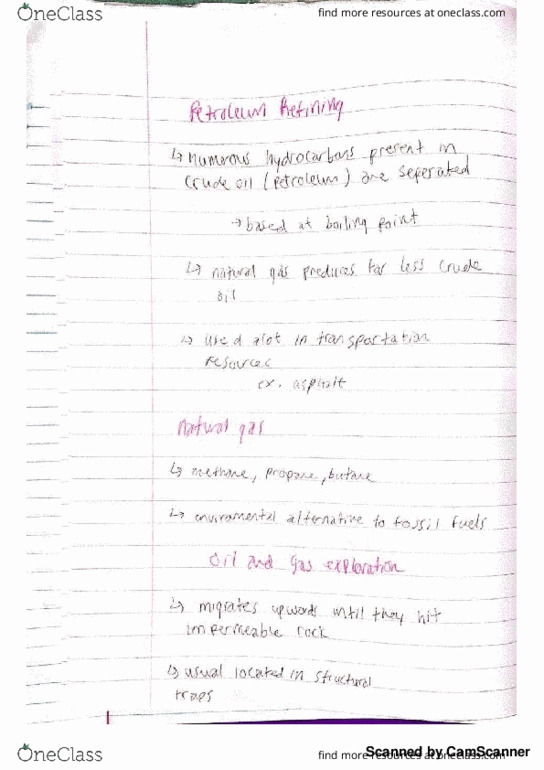 OneClass
find more resources at oneclass.com
Petroleum Refining
↳ Numerous hydrocarbons present in
crude oil (petroleum) are seperated
→ based at boiling point
↳ natural gas produces far less crude
oil
↳ used alot in transportation
resources
ex. asphalt
Natural gas
↳ methane, propane, butane
↳ enviramental alternative to fossil fuels
Oil and gas exploration
↳ migrates upwards until they hit
impermeable rock
↳ usual located in structural
traps
OneClass
find more resources at oneclass.com
Scanned by CamScanner